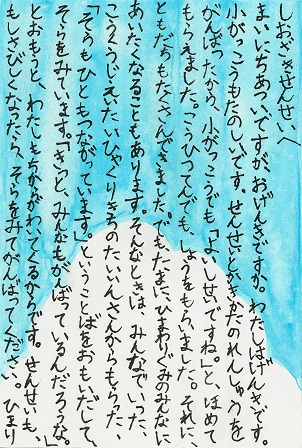 しおざきせんせいへ
まいにちあついですが、おげんきですか。わたしはげんきです。
小がっこうもたのしいです。せんせいとじをかくれんしゅうを
がんばったから、小がっこうでも「よいしせいですね。」と、ほめて
もらえました。こうひつてんでも、しょうをもらいました。それに、
ともだちもたくさんできました。でもたまに、ひまわりぐみのみんなに
あいたくなることもあります。そんなときは、みんなでいった、
こうくうじえいたいひゃくりきちのたいいんさんからもらった、
「そらもひともつながっています。」ということばをおもいだして、
そらをみています。「きっと、みんなもがんばっているんだろうな。」
とおもうと、わたしもちからがわいてくるからです。せんせいも、
もしさびしくなったら、そらをみてがんばってください。ひまり